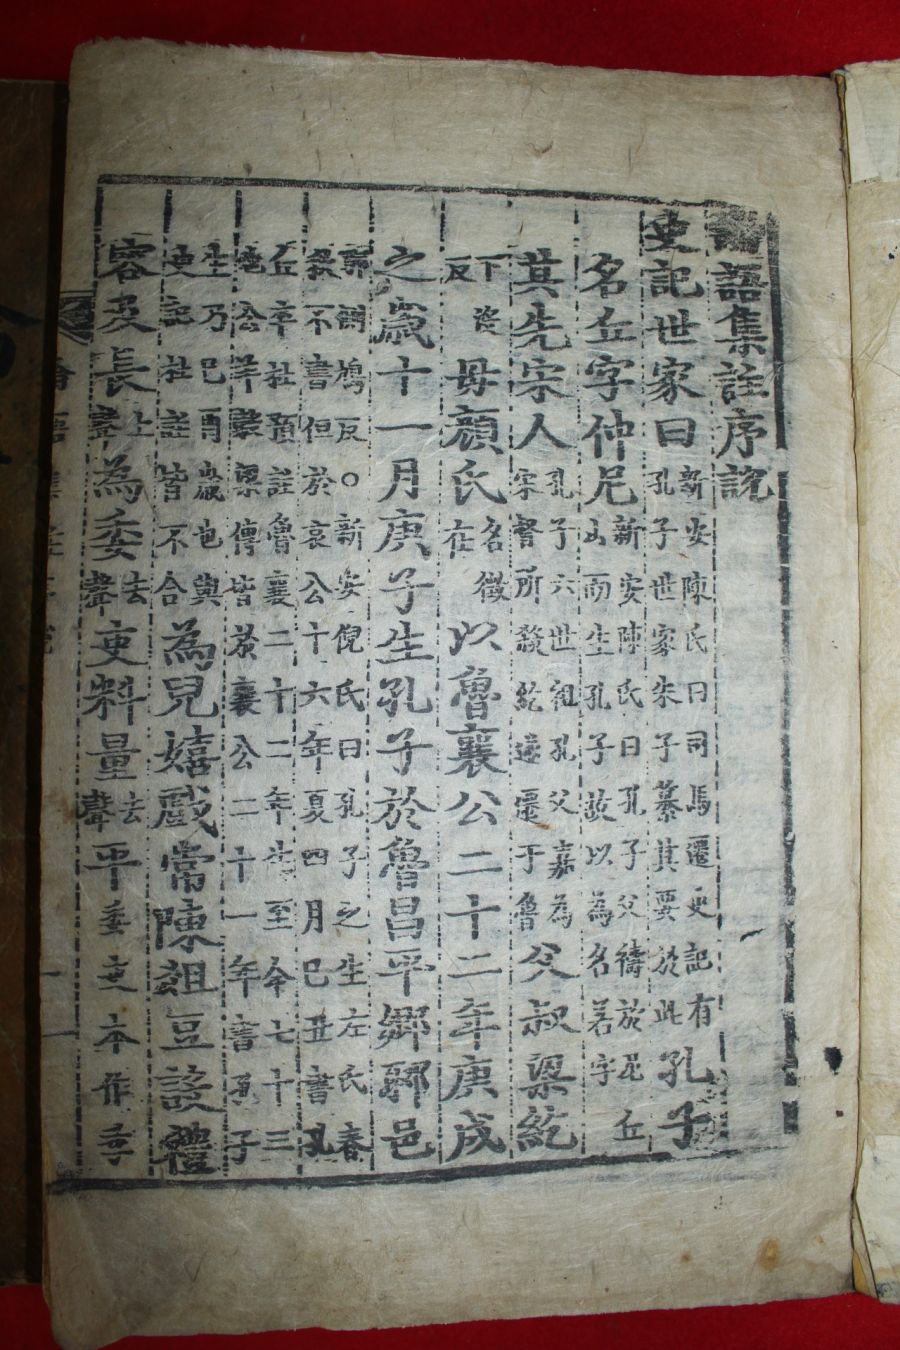 論語集註序說
史記世家曰新安陳氏曰司馬遷史記有孔子世家朱子纂其要於此孔子
名丘字仲尼新安陳氏曰孔子父禱於尼丘山而生孔子故以為名若字
其先宋人孔子六世祖孔父嘉為宋督所殺紇遂遷于魯父叔梁紇
下沒反母顏氏名徵在以魯襄公二十二年庚戌
之歲十一月庚子生孔子於魯昌平鄉陬邑
鄹側鳩反○新安倪氏曰孔子之生左氏春秋不書但於哀公十六年夏四月己丑書孔
丘卒杜預註魯襄二十二年生至今七十三 公羊穀梁傳皆於襄公二十一年書孔子
生乃己酉歲也與史記杜註皆不合為兒嬉戲常陳俎豆設禮
容及長上聲為委去聲吏料量去聲平委吏本作季